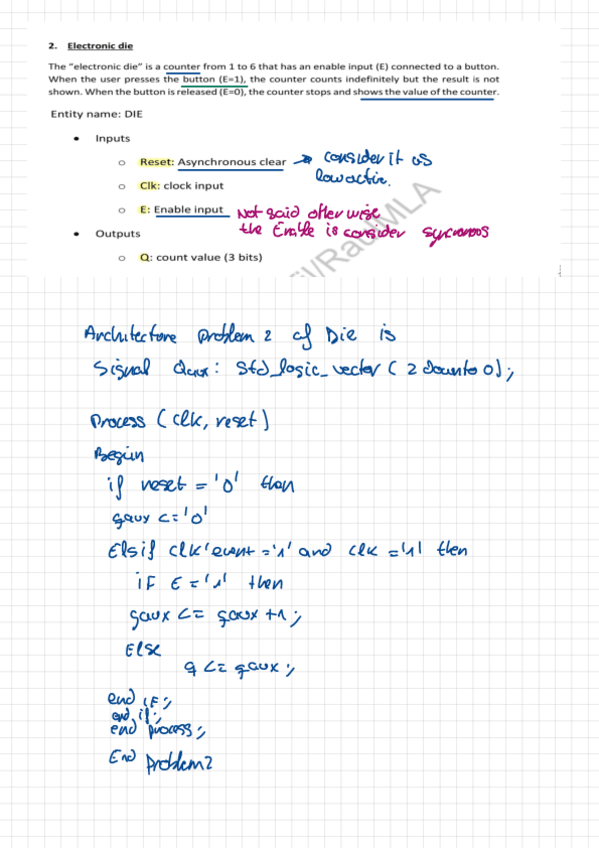 2. Electronic die
The "electronic die" is a counter from 1 to 6 that has an enable input (E) connected to a button.
When the user presses the button (E=1), the counter counts indefinitely but the result is not
shown. When the button is released (E=0), the counter stops and shows the value of the counter.
Entity name: DIE
• Inputs
o Reset: Asynchronous clear → consider it as
low activ.
o Clk: clock input
o E: Enable input Not said otherwise
the Enable is consider syncronos
• Outputs
o Q: count value (3 bits)
Architecture Problem 2 of Die is
Signal Qaux: Std_logic_vector (2 downto 0);
Process (clk, reset)
Begin
if reset = '0' then
qaux <= '0'
Elsif clk'event = '1' and clk = '1' then
iF E = '1' then
qaux <= qaux + 1;
Else
q <= qaux;
end iF;
end if;
end process;
End problem2